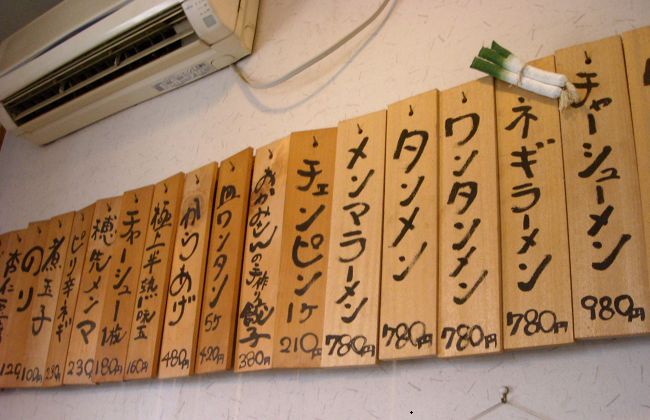 チャーシューメン 980円
ネギラーメン 780円
ワンタンメン 780円
タンメン 780円
メンマラーメン 780円
チェンピン1ケ 210円
おかみさんの手作り餃子 380円
皿ワンタン 5ケ 420円
からあげ 480円
極上半熟味玉 160円
チャーシュー1枚 180円
穂先メンマ 230円
ピリ辛ネギ
煮玉子
のり 100円
杏仁 120